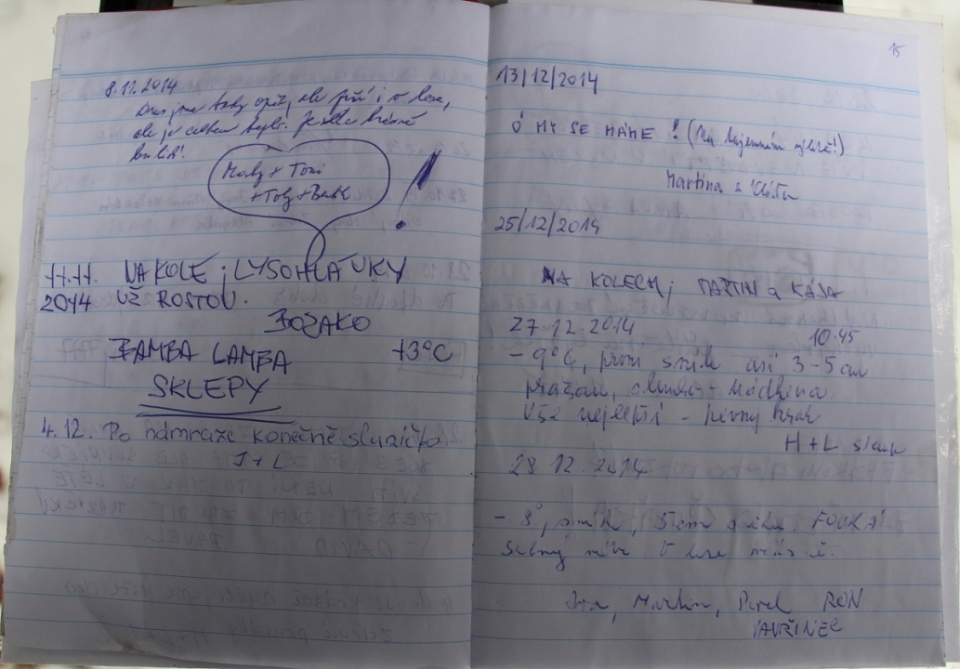 8.11.2014
Dnes jsme tady opět, ale prší i v lese,
ale je celkem teplo. Je tu krásně
Maky + Toni
+ Toby + Bubk
!
11.11. NA KOLE ; LYSOHLÁVKY
2014 UŽ ROSTOU.
BOŽAKO
BAMBA LAMBA +3°C
SKLEPY
4.12. Po námraze konečně sluníčko
J + L
15
13/12/2014
Ó MY SE MÁME ! (Na tajemném výletě!)
Martina a
25/12/2014
NA KOLECH ; MARTIN a KÁJA
27.12.2014 10.45
- 9°C, první sníh asi 3-5 cm
prašan, slunko - nádhera
Vše nejlepší - pevný
H + L
28.12.2014
- 8°, sníh, 5 cm FOUKÁ
Silný V lese krásně.
Martin, Pavel RON
VAVŘINEC